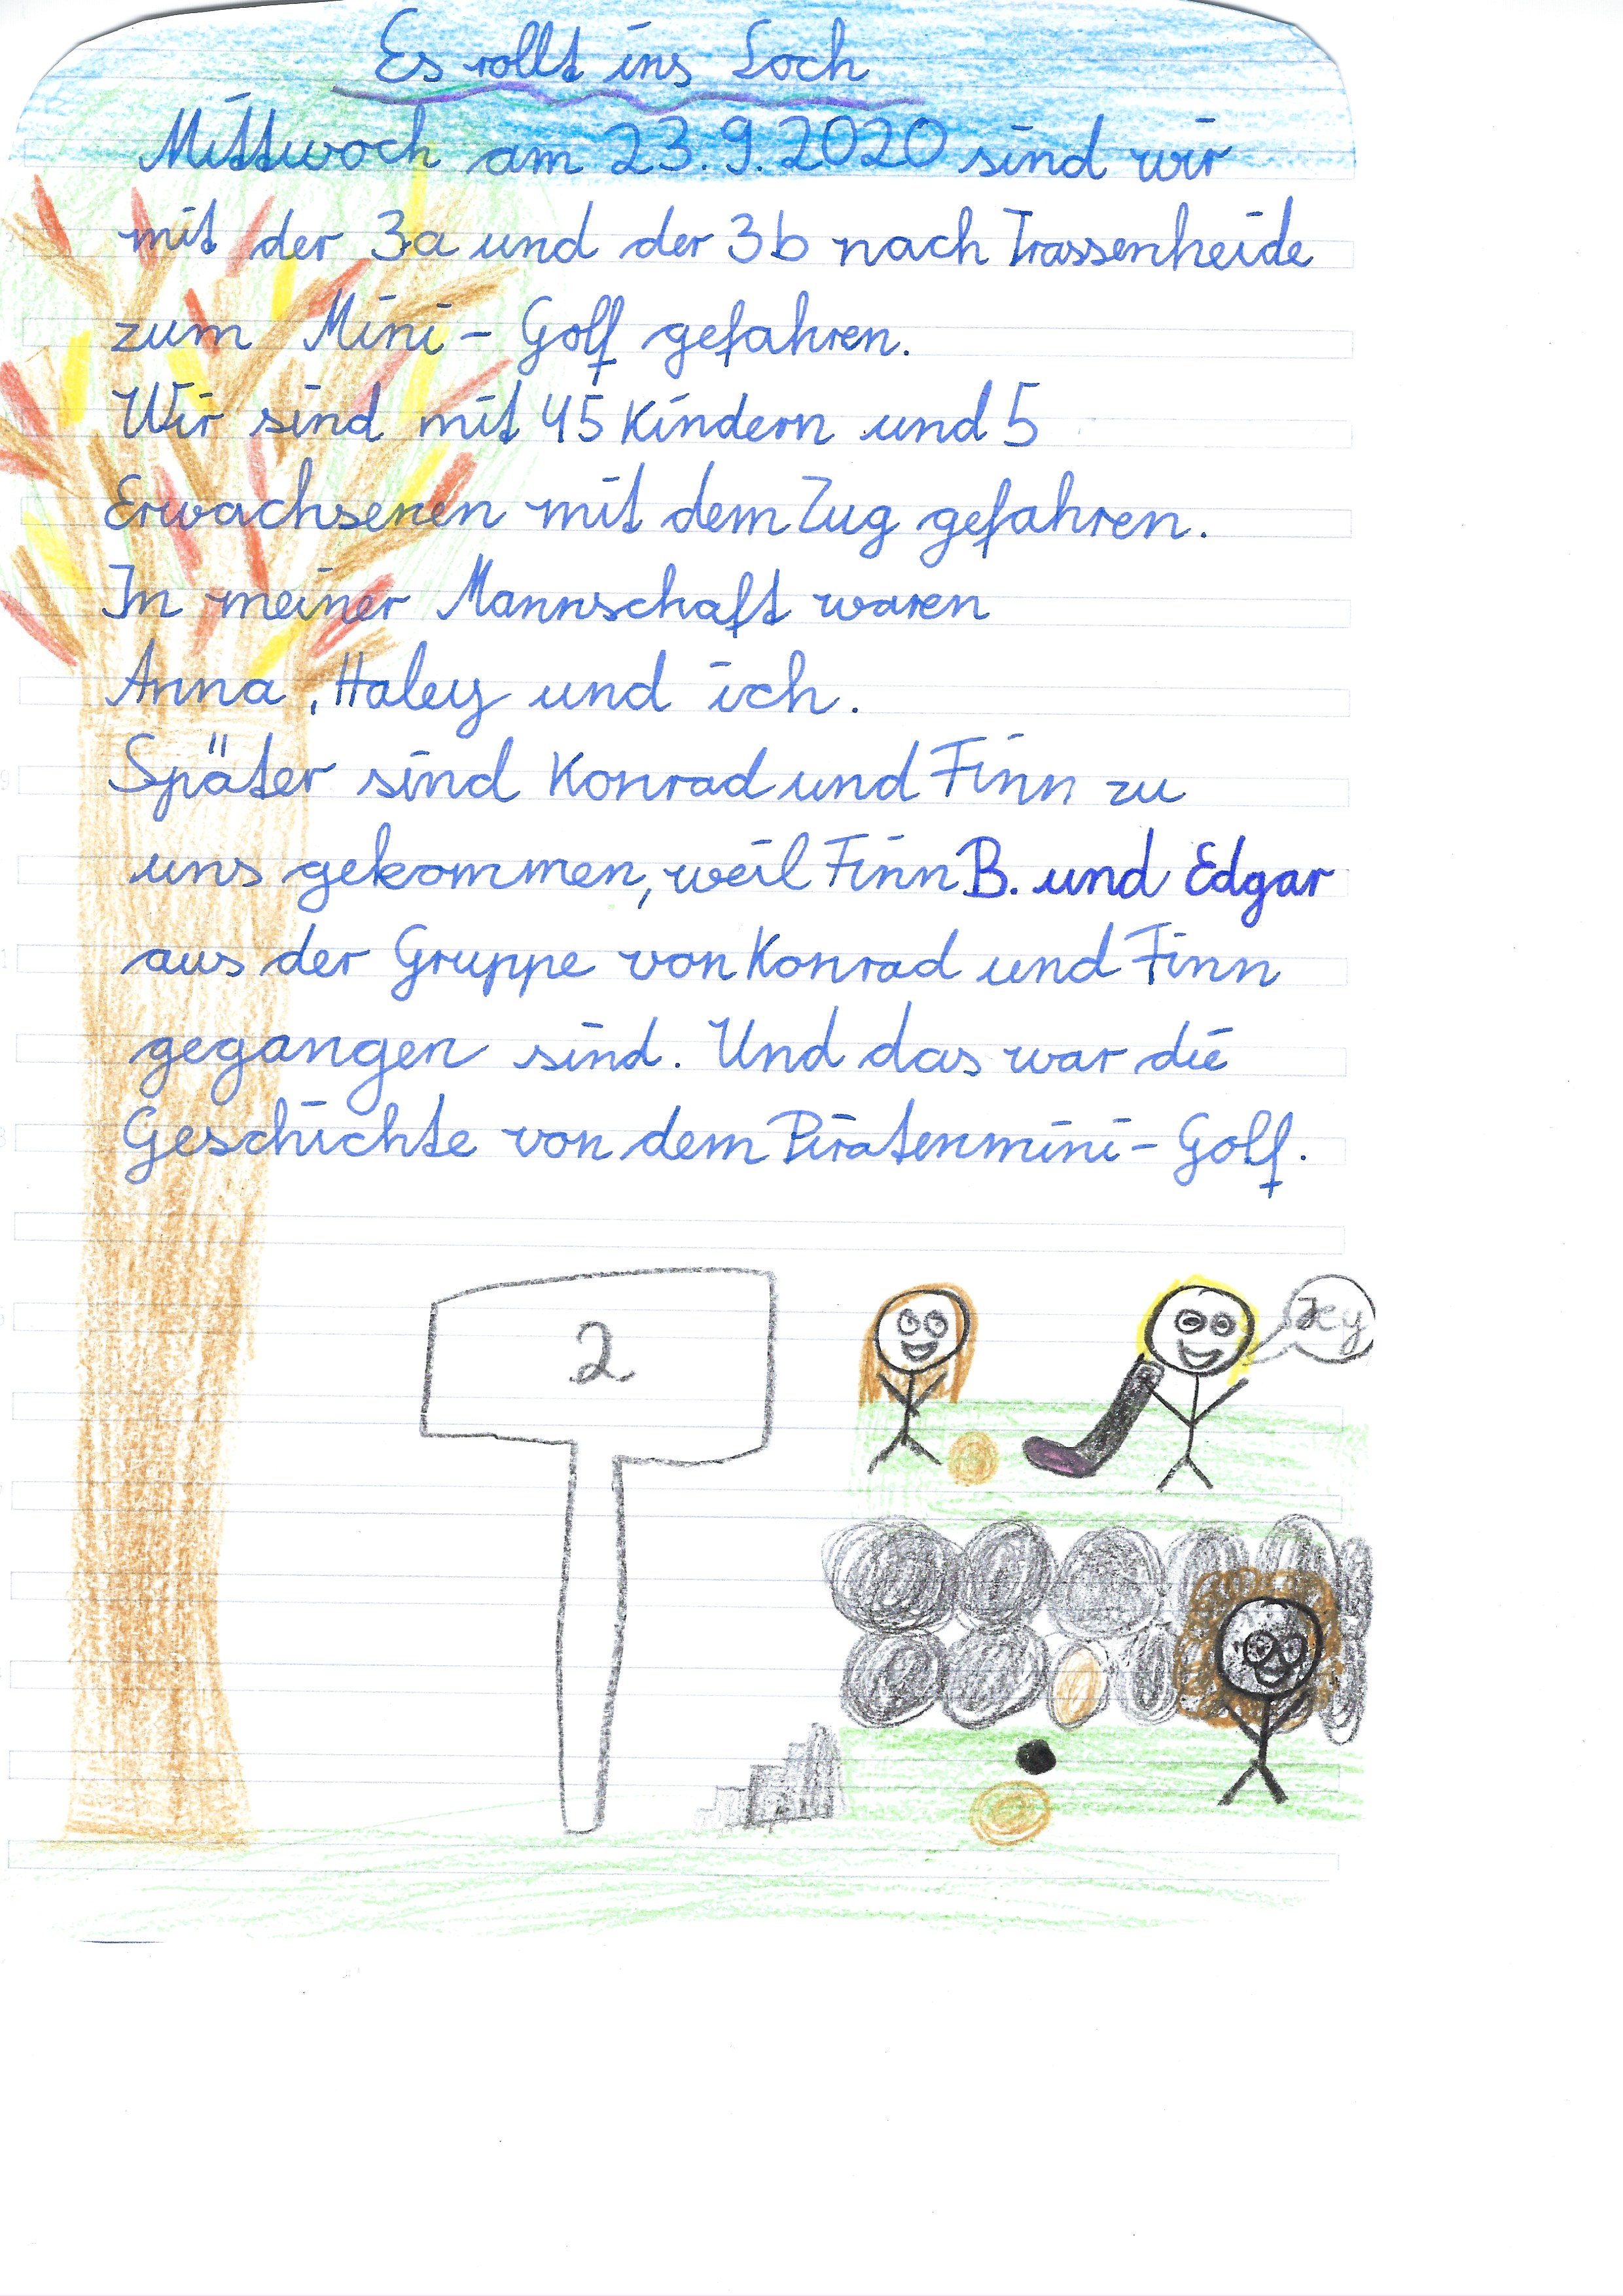 Es rollt ins Loch
Mittwoch am 23.9.2020 sind wir
mit der 3a und der 3b nach Trassenheide
zum Mini-Golf gefahren.
Wir sind mit 45 Kindern und 5
Erwachsenen mit dem Zug gefahren.
In meiner Mannschaft waren
Anna, Haley und ich.
Später sind Konrad und Finn zu
uns gekommen, weil Finn B. und Edgar
aus der Gruppe von Konrad und Finn
gegangen sind. Und das war die
Geschichte von dem Piratenmini-Golf.
2